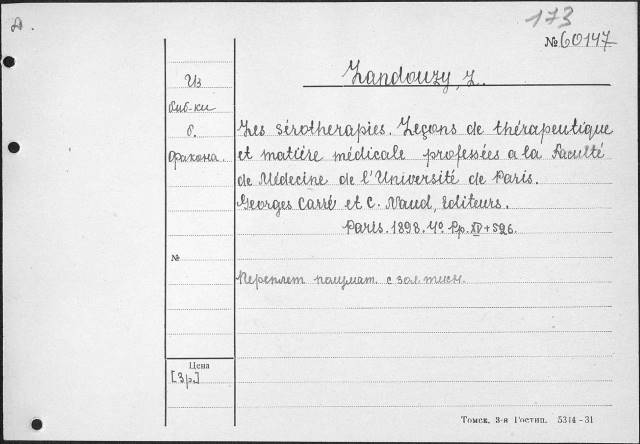 Д.
173
№ 60147
Landouzy, L.
Из
биб-ки
б.
Фракона.
Les sérothérapies. Leçons de thérapeutique
et matière médicale professées a la Faculté
de Médecine de l'Université de Paris.
Georges Carré et C. Naud, Editeurs.
Paris. 1898. 4º. Pp. XV + 526.
№
Переплет полумат. с зол. тисн.
Цена
[3 р.]
Томск, 3-я Гостип. 5314-31